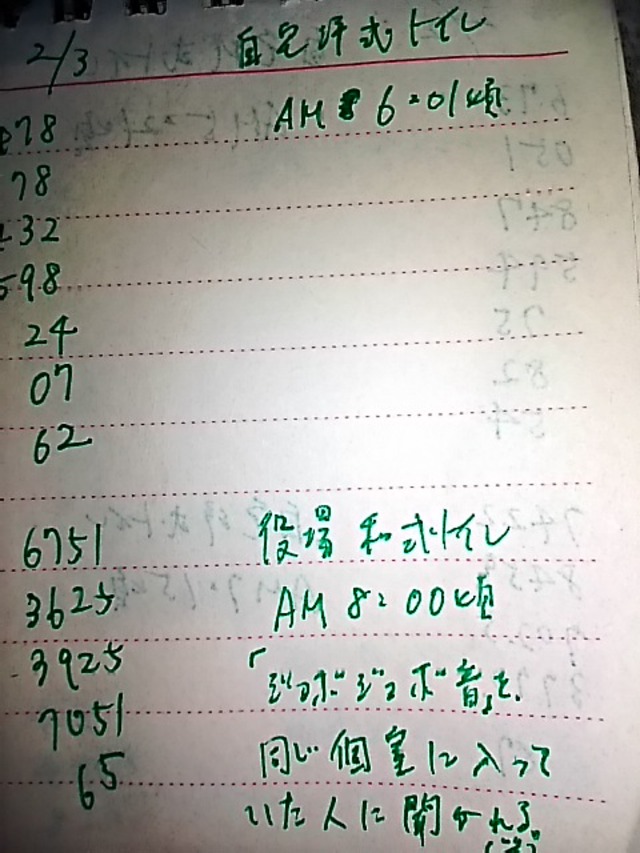 2/3 自宅 洋式トイレ
278 AM 6:01頃
78
32
598
24
07
62
6751 役場 和式トイレ
3625 AM 8:00頃
3925 「ジュボジュボ音」を、
7051 同じ個室に入って
65 いた人に聞かれる